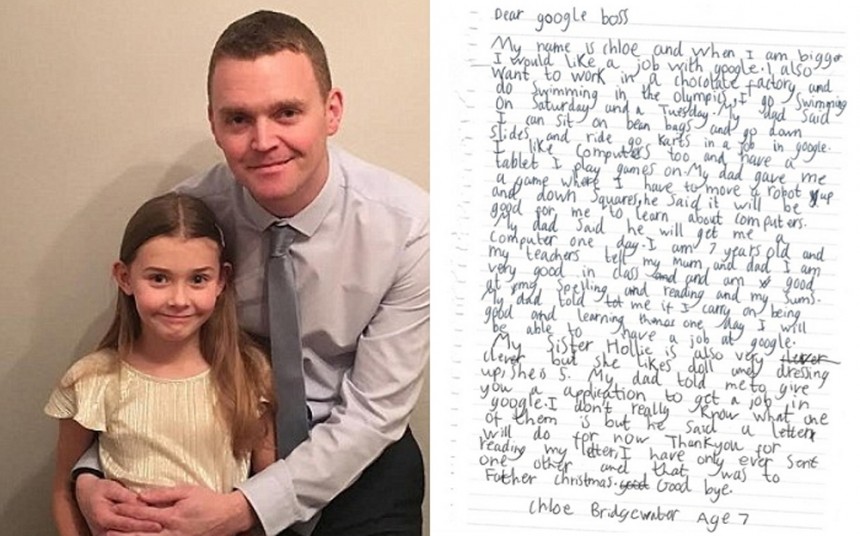 Dear google boss
My name is chloe and when I am bigger
I would like a job with google. I also
want to work in a chocolate factory and
do swimming in the olympics, I go swimming
on Saturday and a Tuesday. My dad said
I can sit on bean bags and go down
slides and ride go karts in a job in google.
I like computers too and have a
tablet I play games on. My dad gave me
a game where I have to move a robot up
and down squares, he said it will be
good for me to learn about computers.
My dad said he will get me a
computer one day. I am 7 years old and
my teachers tell my mum and dad I am
very good in class and and am good
at my spelling and reading and my sums.
My dad told me if I carry on being
good and learning one day I will
be able to have a job at google.
My Sister Hollie is also very clever
clever but she likes doll and dressing
up, she is 5. My dad told me to give
you a application to get a job in
google. I don't really know what one
of them is but he said a letter
will do for now. Thankyou for
reading my letter, I have only ever sent
one other and that was to
Father christmas. good Good bye.
Chloe Bridgewater Age 7